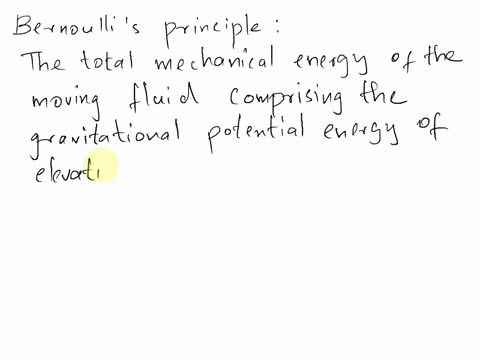 Bernoulli's principle :
The total mechanical energy of the
moving fluid comprising the
gravitational potential energy of
elevati